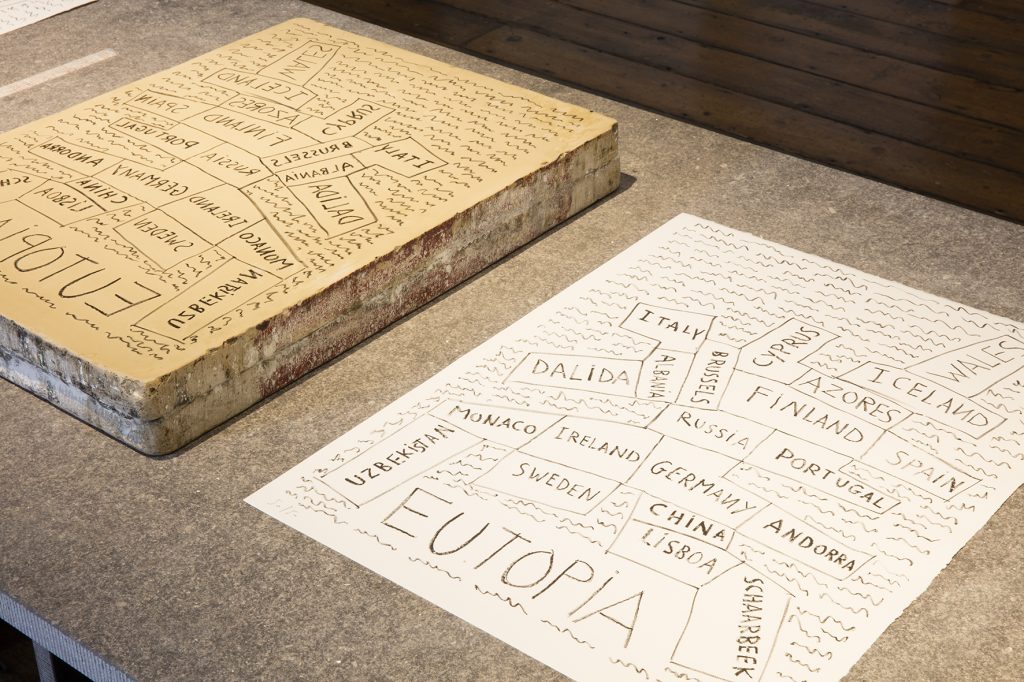 WALES
ICELAND
AZORES
SPAIN
FINLAND
CYPRUS
PORTUGAL
BRUSSELS
ITALY
RUSSIA
ALBANIA
ANDORRA
GERMANY
DALIDA
CHINA
IRELAND
LISBOA
SWEDEN
MONACO
EUTOPIA
UZBEKISTAN
ITALY
CYPRUS
WALES
DALIDA
ALBANIA
BRUSSELS
AZORES
ICELAND
FINLAND
MONACO
IRELAND
RUSSIA
SPAIN
UZBEKISTAN
SWEDEN
GERMANY
PORTUGAL
CHINA
ANDORRA
LISBOA
EUTOPIA
SCHAARBEEK